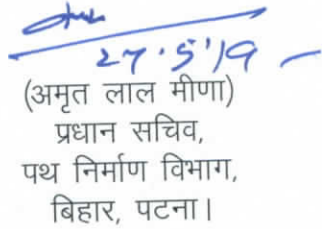 27.5'19
(अमृत लाल मीणा)
प्रधान सचिव,
पथ निर्माण विभाग,
बिहार, पटना।